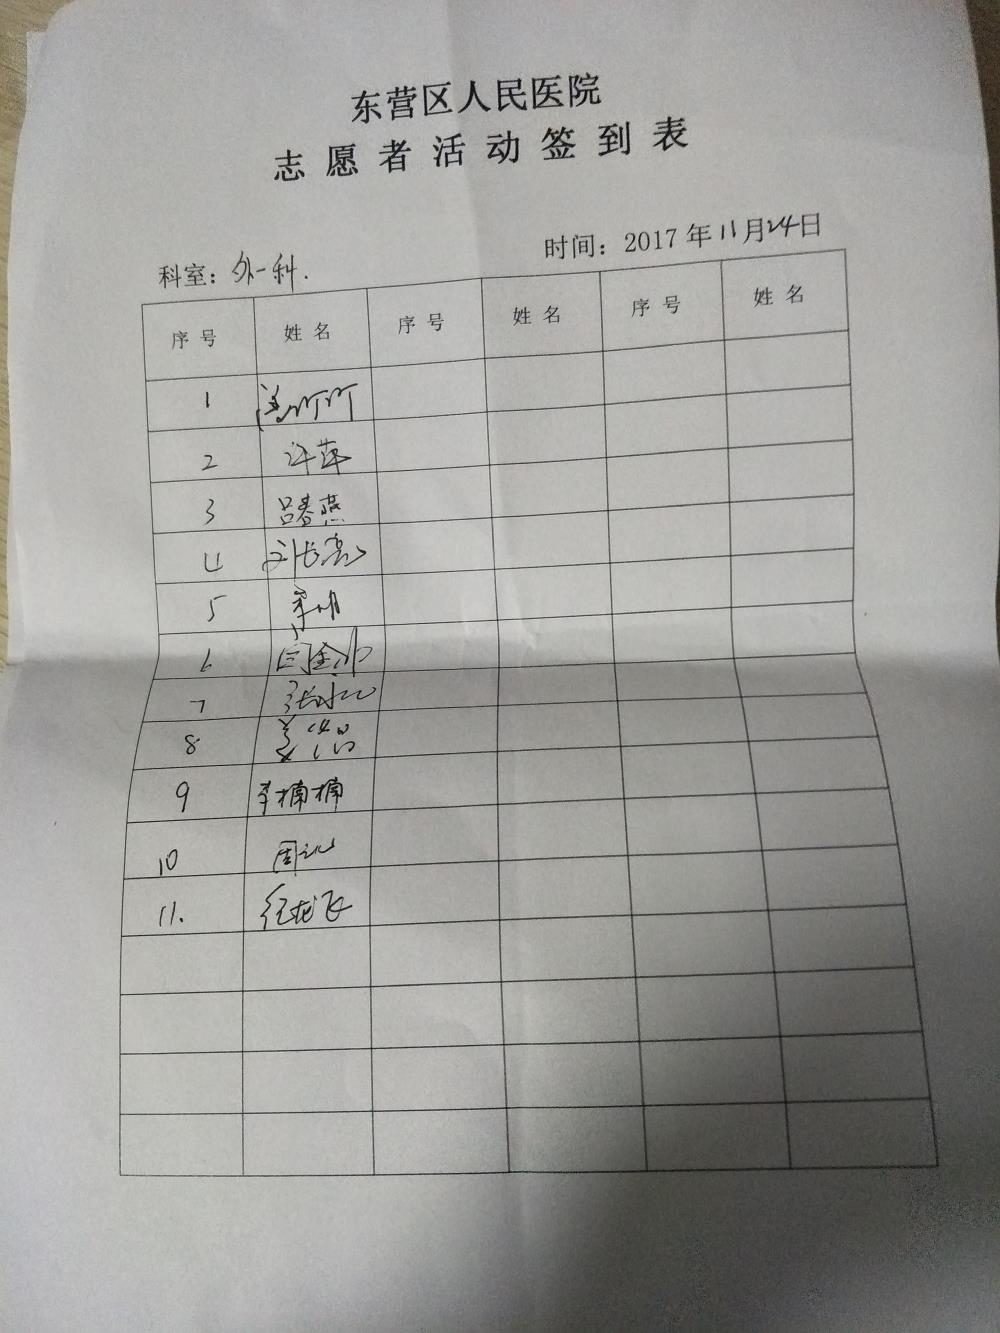 东营区人民医院
志愿者活动签到表
科室：外一科.
时间：2017年11月24日
序号 姓名 序号 姓名 序号 姓名
1
2 许萍
3 吕春燕
4 刘长亮
5
6
7
8
9 李楠楠
10
11. 任龙飞